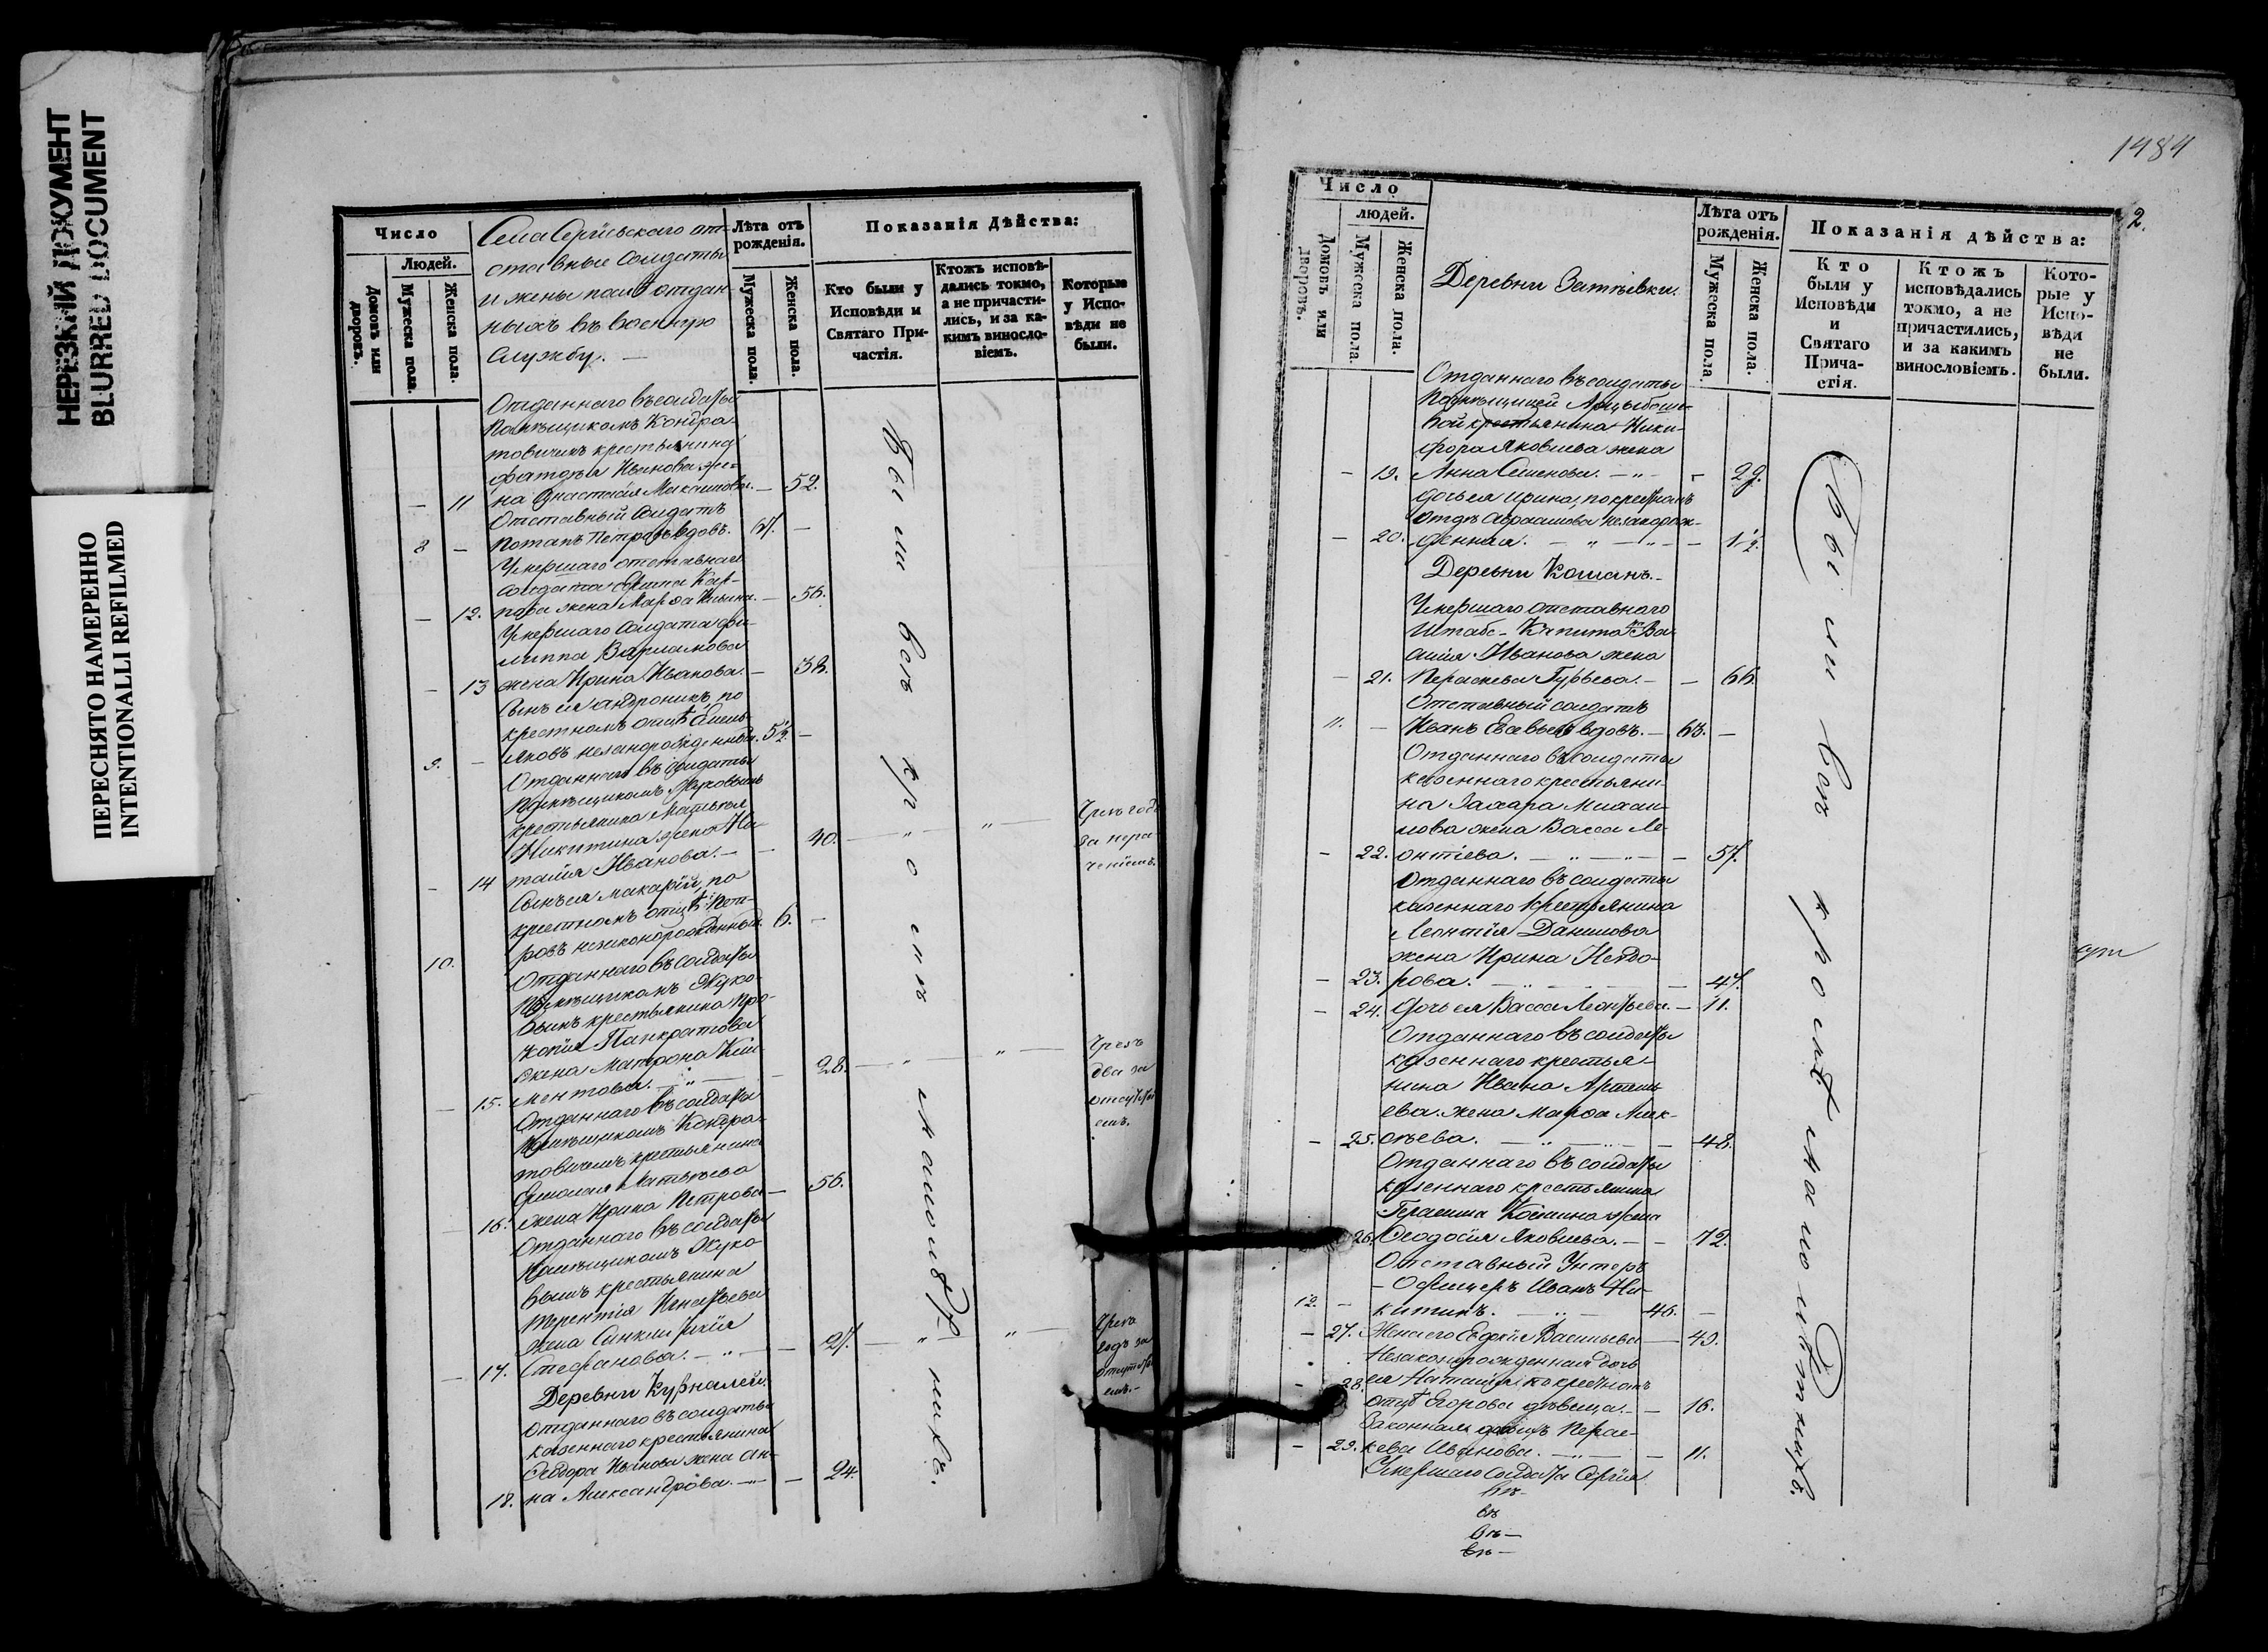 НЕРЕЗКИЙ ДОКУМЕНТ
BLURRED DOCUMENT
ПЕРЕСНЯТО НАМЕРЕННО
INTENTIONALLI REFILMED
Число
Людей.
Домовъ или дворовъ.
Мужеска пола.
Женска пола.
Села Сергіевскаго от-
ставные Солдаты
и жены
отдан
ныхъ въ военную
службу. —
Лѣта отъ
рожденія.
Мужеска пола.
Женска пола.
Показанія Дѣйства:
Кто были у
Исповѣди и
Святаго При-
частія.
Ктожъ исповѣ-
дались токмо,
а не причасти-
лись, и за ка-
кимъ винословіемъ.
Которые
у Испо-
вѣди не
были.
Отданнаго въ солдаты
Помѣщикомъ Кондра-
товичемъ крестьянина
Иванова же-
— 11 на Анастасія Максимова. — 52.
Отставный Солдатъ
8 — Потапъ Петровъ вдовъ. 61. —
Умершаго отставнаго
солдата Кар-
— 12. пова жена Марѳа Ильина. — 56.
Умершаго Солдата Фи-
липпа Варламова
— 13 жена Ирина Иванова. — 38.
Сынъ ея Андроникъ, по
крестномъ отцѣ Емель-
9. — яновъ незаконорожденный. 5 1/2. —
Отданнаго въ солдаты
Помѣщикомъ
крестьянина Матвея
Никитина жена На-
— 14 талія Иванова. — — 40. — " — " — Чрезъ годъ
за нера-
ченіемъ.
Сынъ ея Макарій, по
крестномъ отцѣ Пет-
10. ровъ незаконорожденный. 6. —
Отданнаго въ солдаты
Помѣщикомъ Жуко-
вымъ крестьянина Про-
копія Панкратова
жена Матрона Кли-
— 15. ментова. — " — — 28. — " — " — Чрезъ
два за
отсутстві
емъ.
Отданнаго въ солдаты
Помѣщикомъ Кондра-
товичемъ крестьянина
Ермолая Матвѣева
— 16. жена Ирина Петрова — 56.
Отданнаго въ солдаты
Помѣщикомъ Жуко
вымъ крестьянина
Терентія Игнатьева
жена Синклитикія
— 17. Стефанова. — " — — 27. — " — " — Чрезъ
годъ за
отсутстві
емъ. —
Деревни Курналей.
Отданнаго въ солдаты
казеннаго крестьянина
Ѳедора Иванова жена Ан-
18. на Александрова. — " — — 24.
Были всѣ кромѣ малолѣтнихъ.
1484
2.
Число
людей.
Домовъ или дворовъ.
Мужеска пола.
Женска пола.
Деревни Затѣевки.
Лѣта отъ
рожденія.
Мужеска пола.
Женска пола.
Показанія дѣйства:
Кто
были у
Исповѣди
и
Святаго
Прича-
стія.
Ктожъ
исповѣдались
токмо, а не
причастились,
и за какимъ
винословіемъ.
Кото-
рые у
Испо-
вѣди
не
были.
Отданнаго въ солдаты
Помѣщицей Арцыбаше-
вой крестьянина Ники-
фора Яковлева жена
— 19. Анна Семенова. — " — — 29.
дочь ея Ирина, по крестномъ
отцѣ Абрамова незаконорож-
— 20. денная. — " — " — — 1 1/2.
Деревни Кошанъ. —
Умершаго отставнаго
Штабс-Капитана Ва-
силія Иванова жена
— 21. Пераскева Гурьева. — — 66.
Отставный солдатъ
11. — Иванъ Евсевьевъ вдовъ. — 63. —
Отданнаго въ солдаты
казеннаго крестьяни-
на Захара Михаи-
лова жена Васса Ле-
— 22. онтіева. — " — " — — 57.
Отданнаго въ солдаты
казеннаго крестьянина
Леонтія Данилова
жена Ирина Ѳедо-
— 23. рова. — " — " — — 47.
— 24. дочь ея Васса Леонтьева. — 11.
Отданнаго въ солдаты
казеннаго крестья-
нина Ивана Артемь
ева жена Марѳа Алек-
— 25. сѣева. — " — " — — 48.
Отданнаго въ солдаты
казеннаго крестьянина
Герасима жена
26. Ѳеодосія Яковлева. — — 72.
Отставный Унтеръ
- Офицеръ Иванъ Ни-
12. — китинъ. — " — 46. —
— 27. Жена его Евдокія Васильева — 43.
Незаконорожденная дочь
ея Наталія по крестномъ
— 28. отцѣ Егорова дѣвица. — — 16.
Законная дочь ихъ Перас-
— 29. кева Иванова. — " — — 11.
Умершаго солдата Сергія
въ —
въ
въ —
въ —
Были всѣ кромѣ малолѣтнихъ.